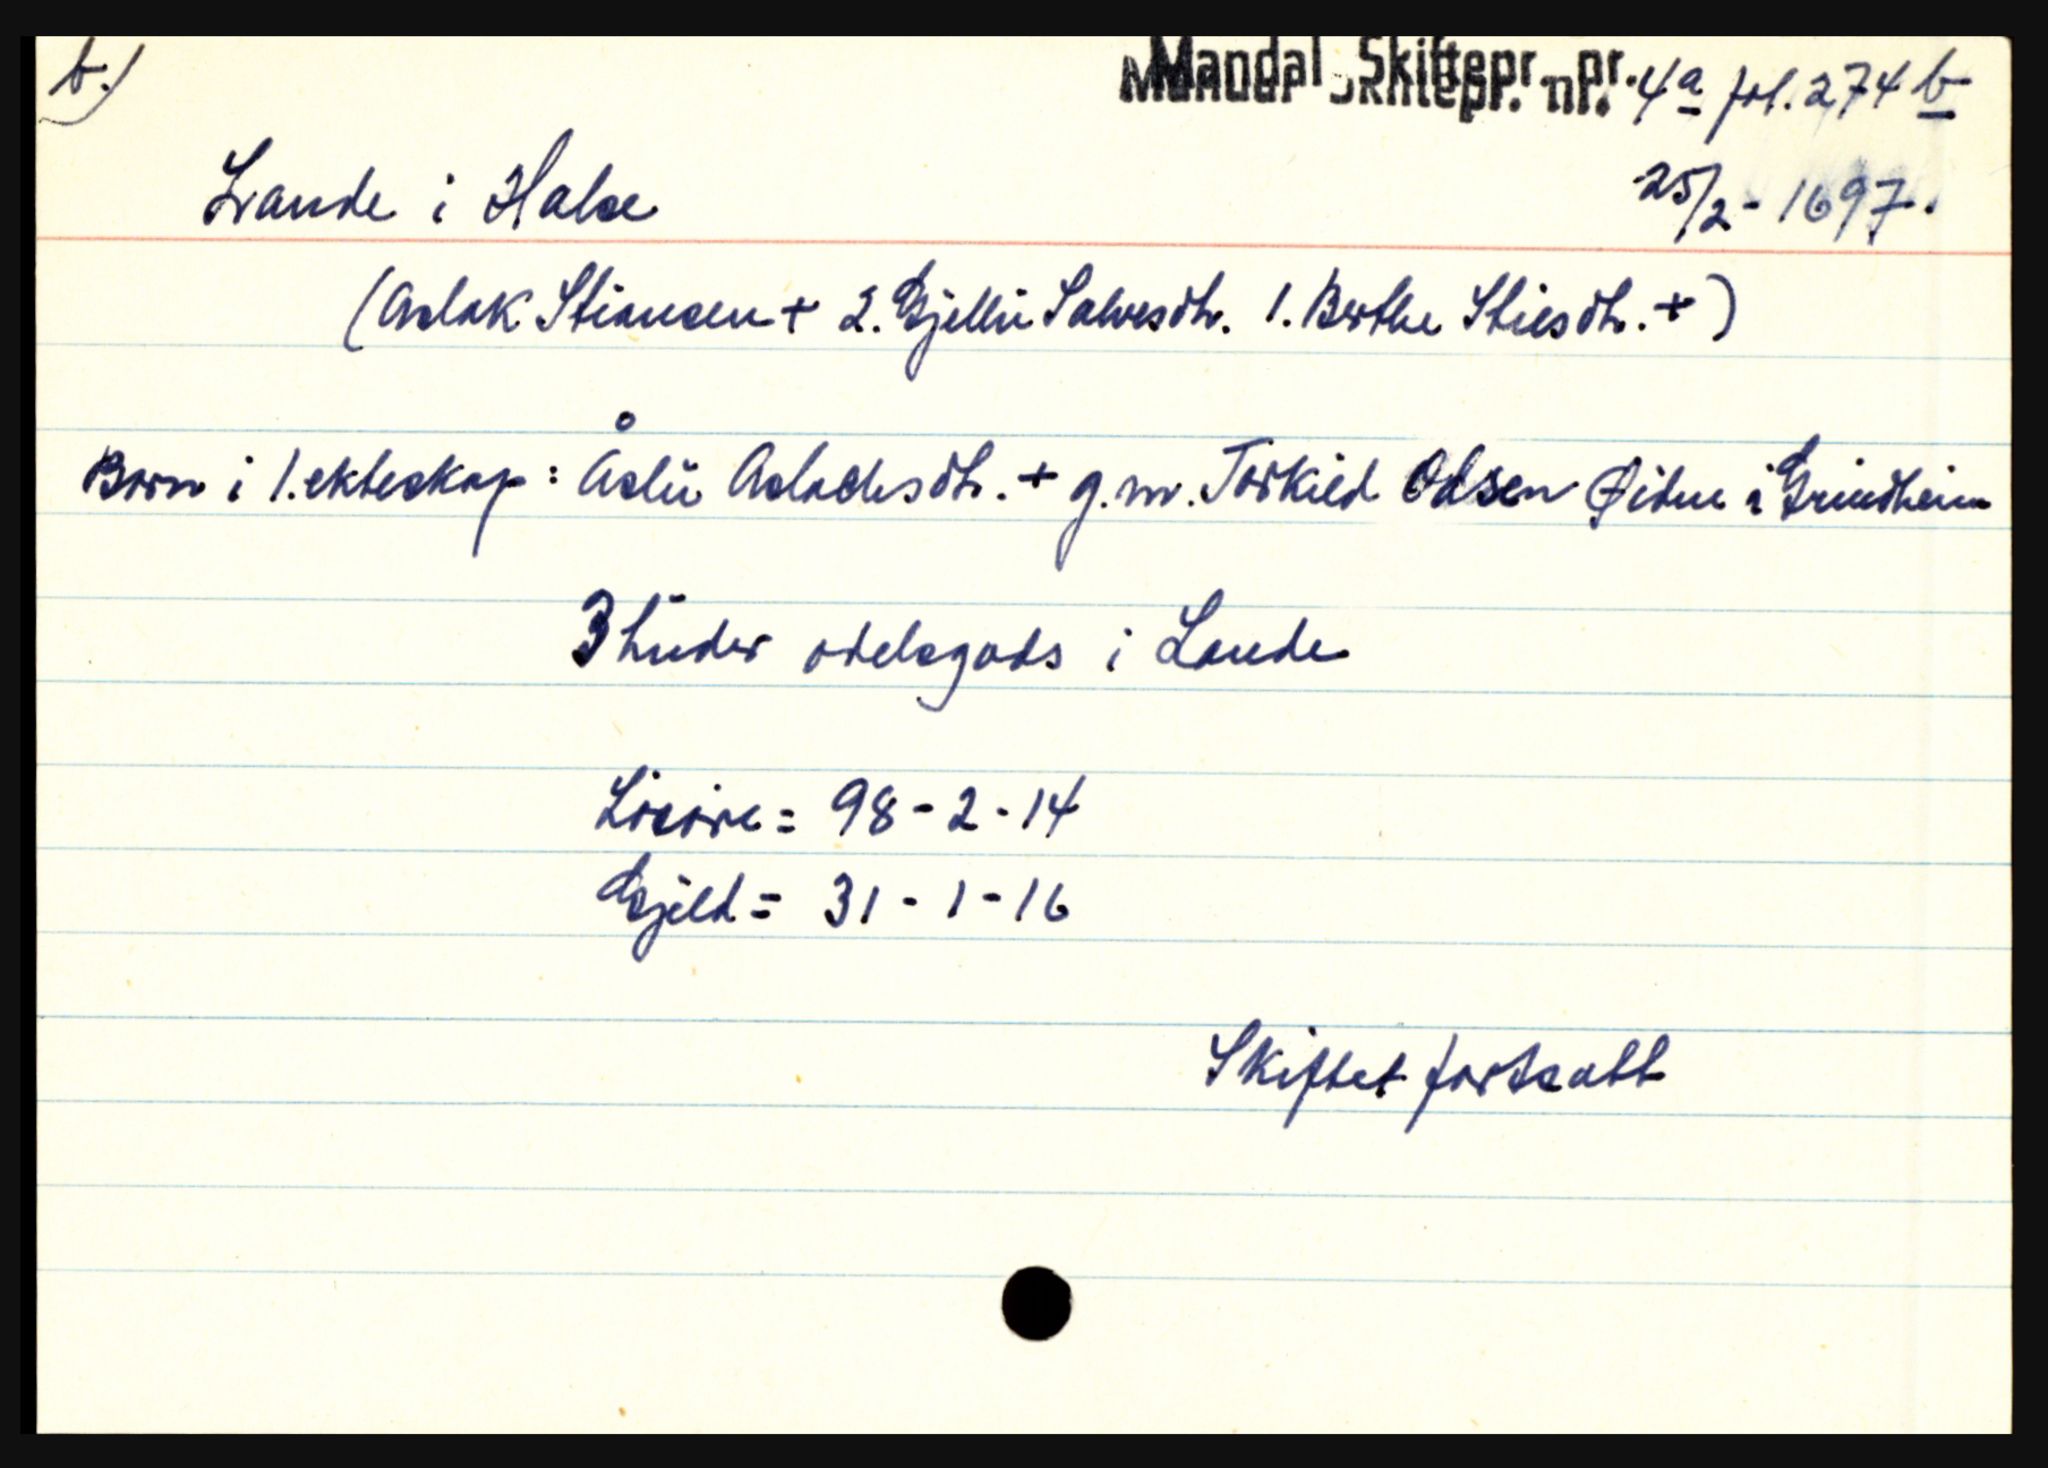 b.)
Mandal Skiftepr. nr. 4a fol. 274 b
25/2 - 1697.
Lande i Halse
(Aslak Stiansen + 2. Gjellü Salvesdtr. 1. Berthe Stiesdtr. +)
Born i 1. ekteskap: Åslü Aslachsdtr. + g.m. Torkild Odsen Øidne i Grindheim
3 hüder odelsgods i Lande
Lösöre = 98 - 2 - 14
Gjeld = 31 - 1 - 16
Skiftet fortsatt